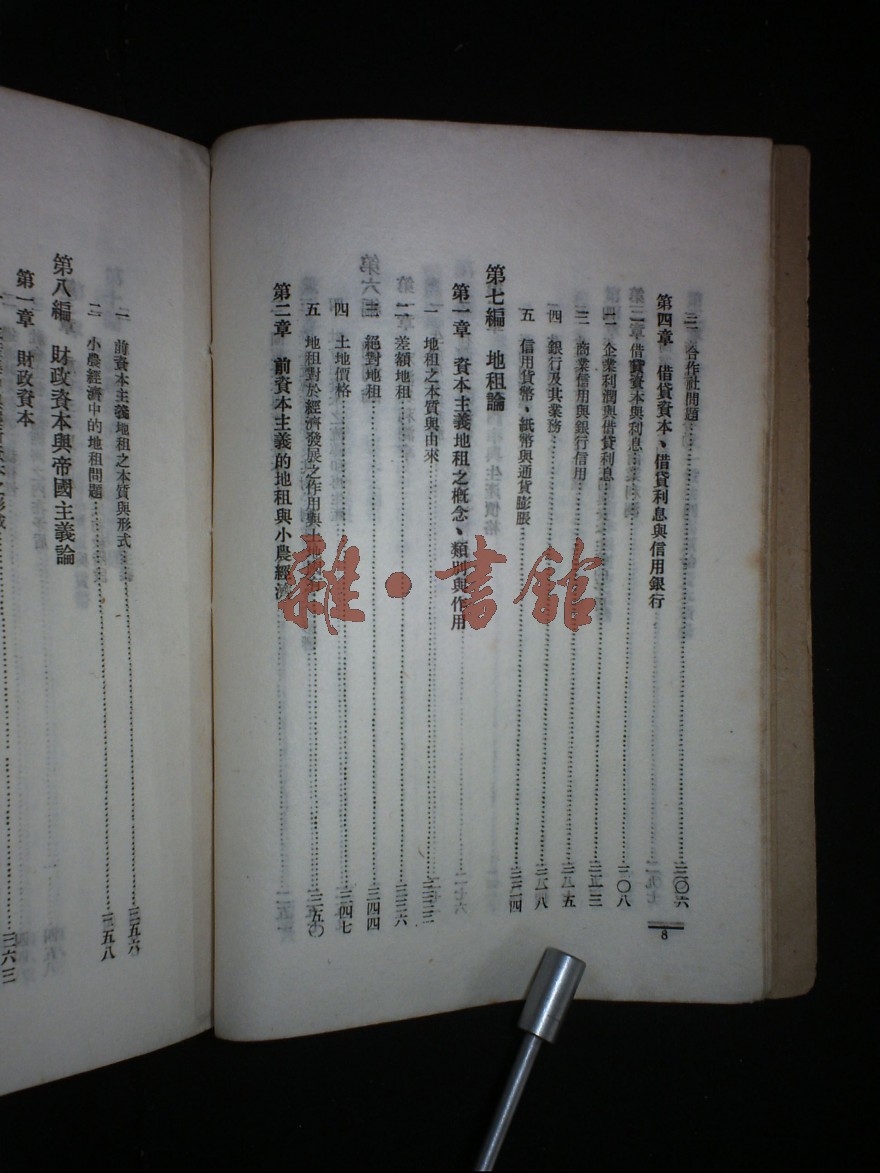 三 合作社問題……三〇六
第四章 借貸資本、借貸利息與信用銀行
一 借貸資本與利息……三〇八
二 企業利潤與借貸利息……三一三
三 商業信用與銀行信用……三一五
四 銀行及其業務……三一八
五 信用貨幣、紙幣與通貨膨脹……三二四
第七編 地租論
第一章 資本主義地租之概念、類別與作用
一 地租之本質與由來……三三三
二 差額地租……三三六
三 絕對地租……三四四
四 土地價格……三四七
五 地租對於經濟發展之作用與土地國有……三五〇
第二章 前資本主義的地租與小農經濟
8
一 前資本主義地租之本質與形式……三五六
二 小農經濟中的地租問題……三五八
第八編 財政資本與帝國主義論
第一章 財政資本
三六三
雜·書館